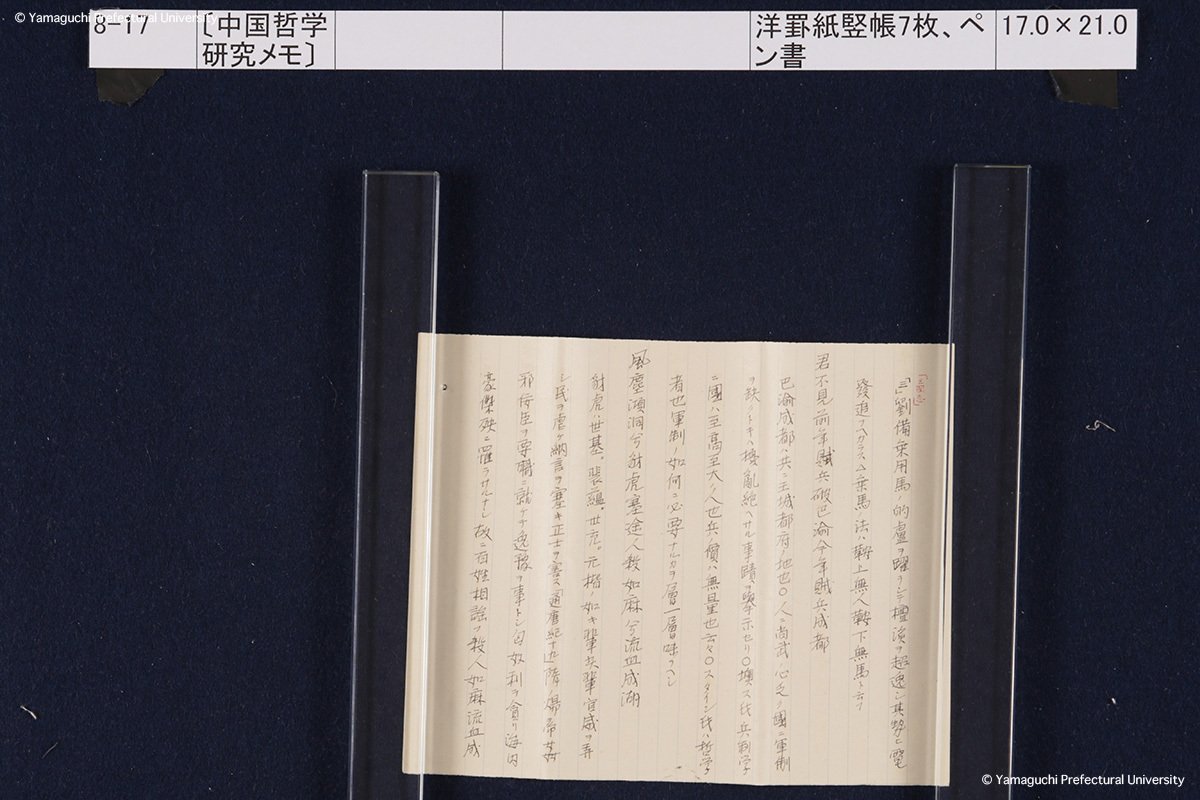 © Yamaguchi Prefectural University
8-17
〔中国哲学
研究メモ〕
洋罫紙竪帳7枚、ペ
ン書
17.0×21.0
劉備乗用馬ノ的盧ヲ躍ラシテ檀渓ヲ超逸シ其勢ヒ電
發追フヘカラス△乗馬法ハ鞍上無人鞍下無馬ト云フ
君不見前年賊兵破巴渝今年賊兵成都
巴渝成都ハ共ニ王城都府ノ地也〇人ニ尚武ノ心乏ク國ニ軍制
ヲ缺クトキハ擾亂絶ヘサル事蹟ヲ擧示セリ〇墺ス氏兵制学
ニ國ハ至高至大ノ人也兵ノ價ハ無量也云々〇スタイン氏ハ哲学
者也軍制ノ如何ニ必要ナルカヲ層一層味フヘシ
風塵澒洞兮豺虎塞途人殺如麻兮流血成湖
豺虎ハ世基。裴蘊。世充。元楷ノ如キ輩其輩官威ヲ弄
シ民ヲ虐ケ納言ヲ塞キ正士ヲ害ス
邪侫臣ヲ要職ニ就ケテ逸豫ヲ事トシ奴利ヲ貪リ海内
豪傑殃ニ罹ラサルナシ故ニ百姓相謡フ殺人如麻流血成
© Yamaguchi Prefectural University